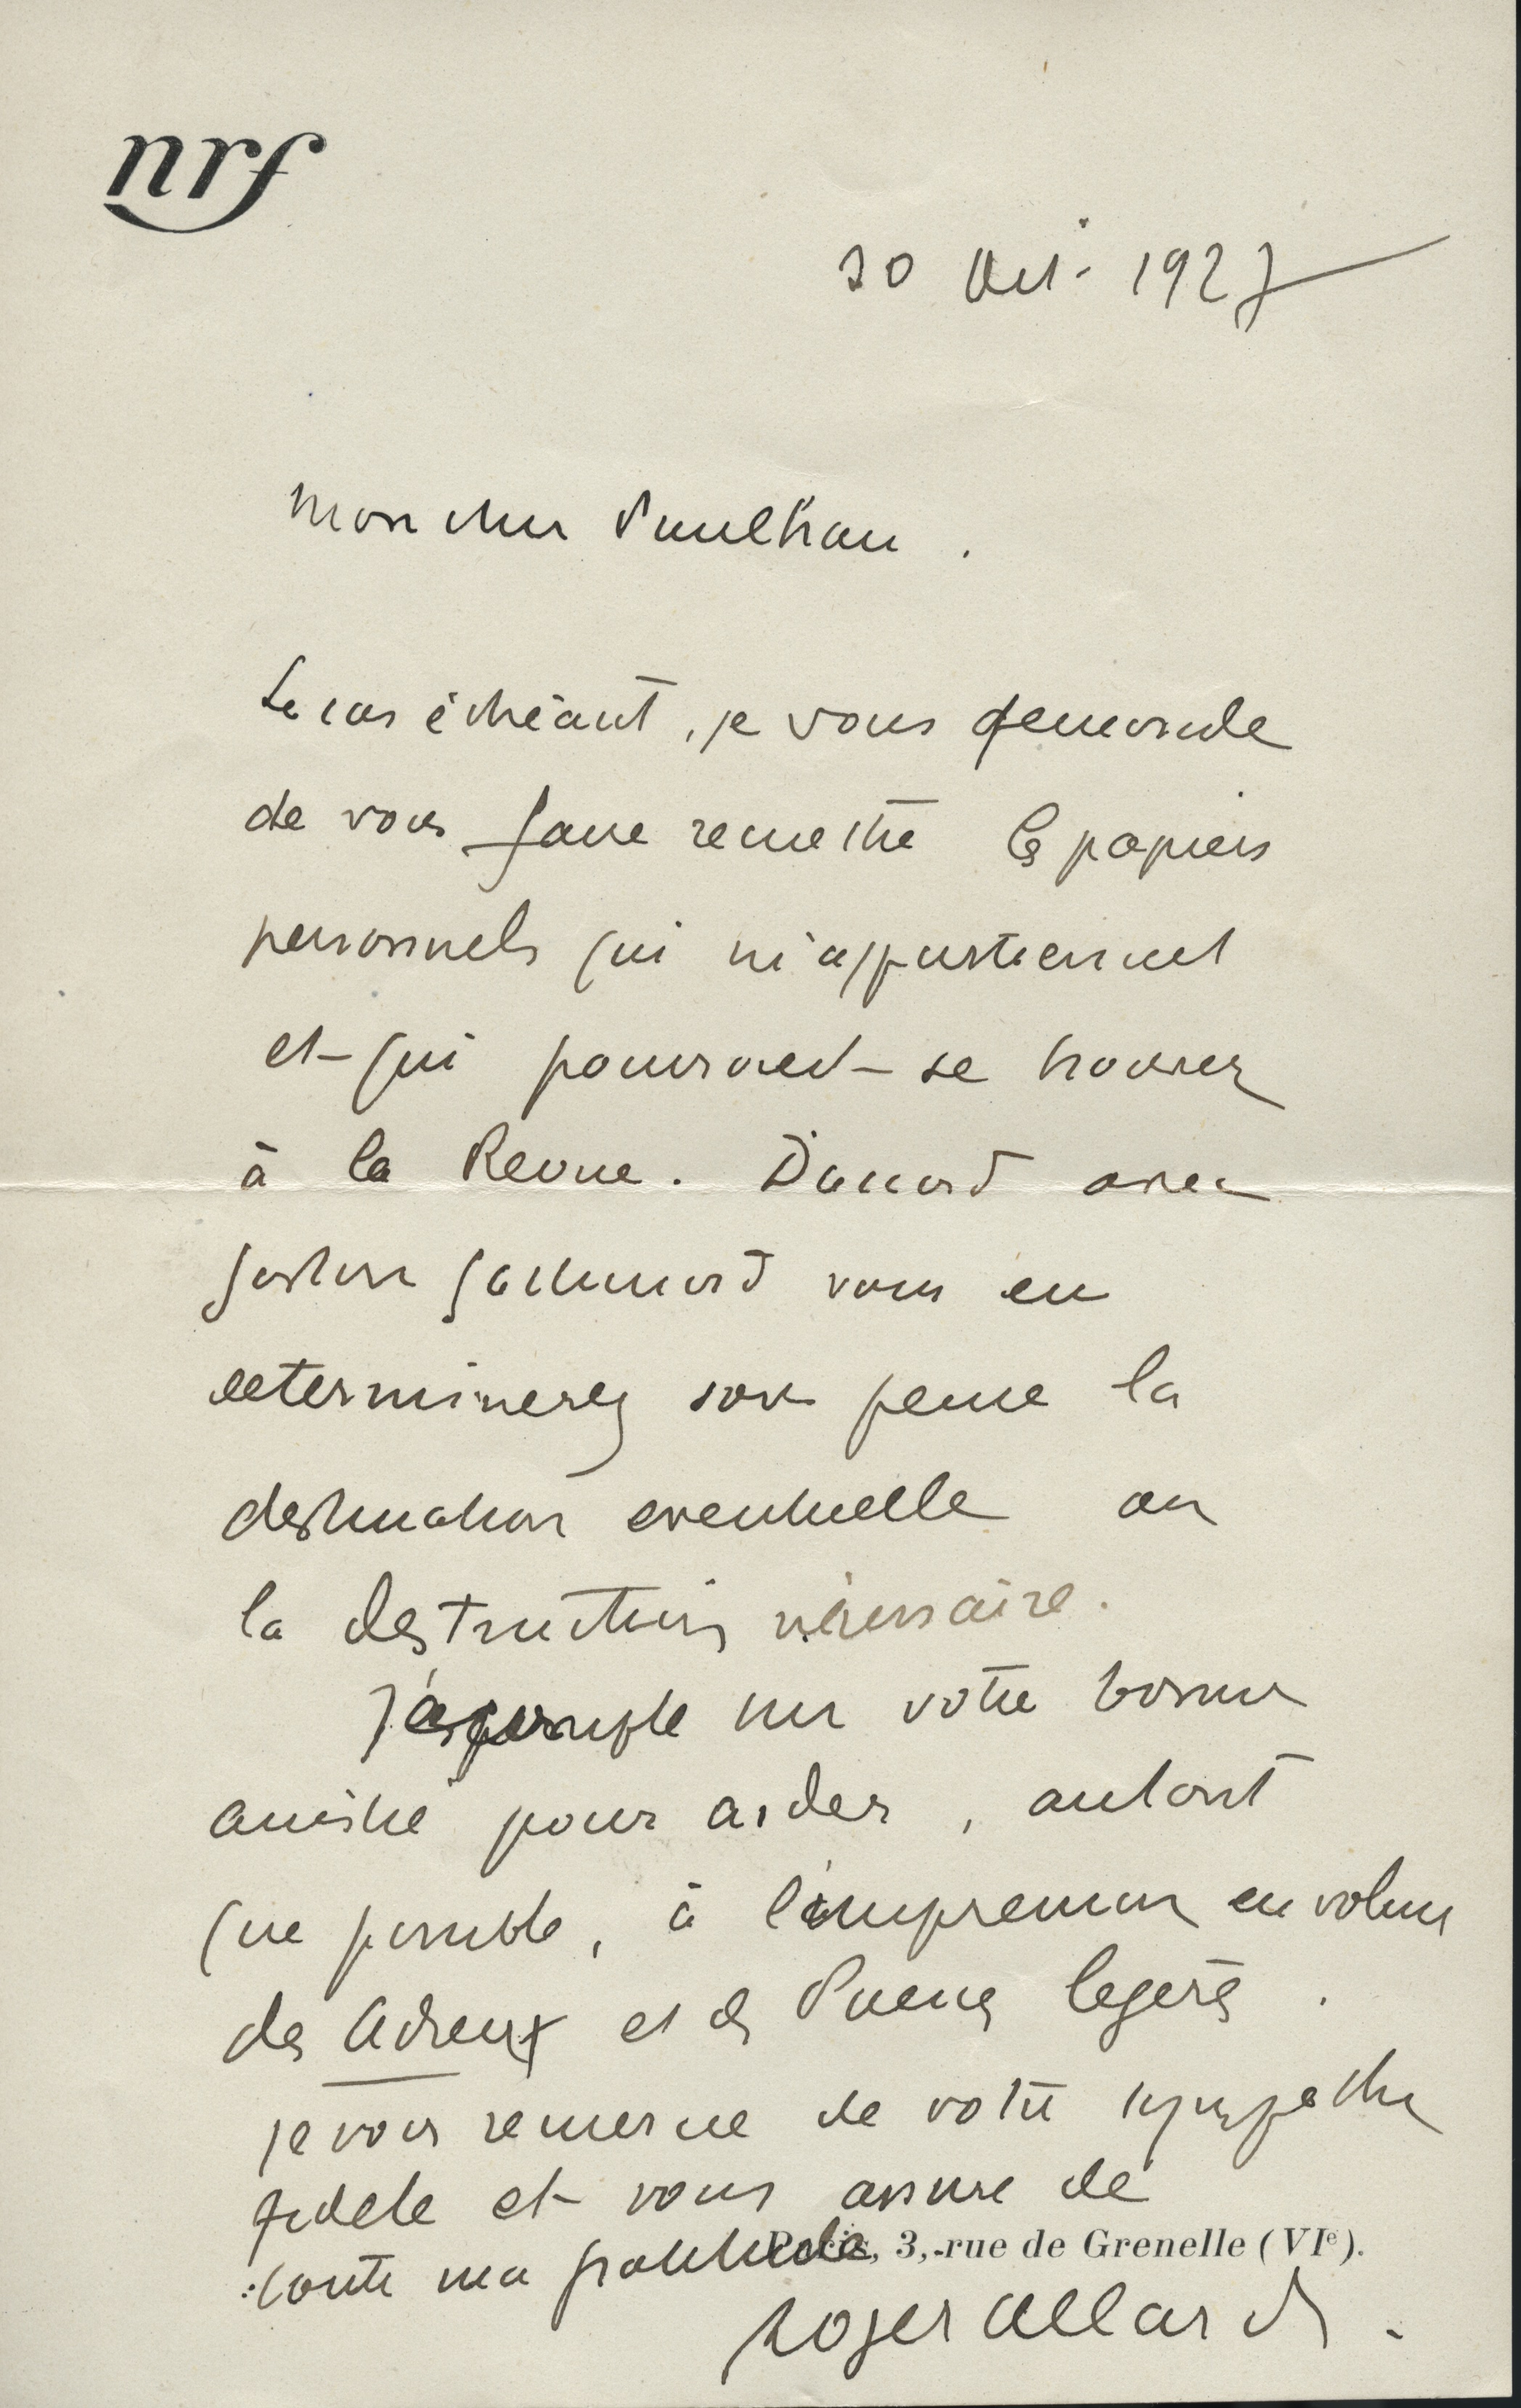 nrf
30 Oct. 1927
Mon cher Paulhan.
Le cas échéant, je vous demande
de vous faire remettre les papiers
personnels qui m'appartiennent
et qui pourraient se trouver
à la Revue. D'accord avec
Gaston Gallimard vous en
determinerez sans peine la
destination eventuelle ou
la destruction nécessaire.
Je compte sur votre bonne
amitié pour aider, autant
que possible, à l'impression en volume
des Adieux et des Poemes legers.
je vous remercie de votre sympathie
fidele et vous assure de
toute ma gratitude
Paris, 3, rue de Grenelle (VIe).
Roger Allard.